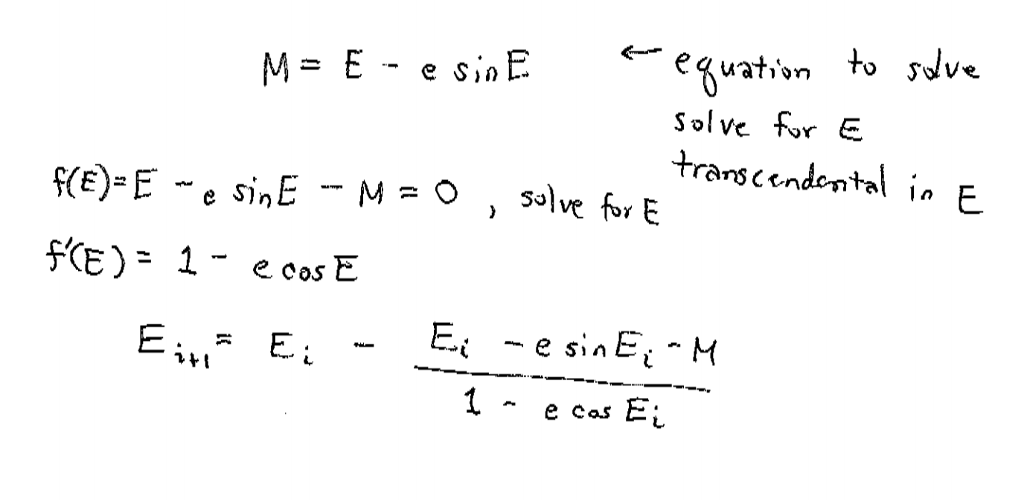 M = E - e sin E ← equation to solve
solve for E
transcendental in E
f(E) = E - e sin E - M = 0 , solve for E
f'(E) = 1 - e cos E
E_{i+1} = E_i - \frac{E_i - e sin E_i - M}{1 - e cos E_i}